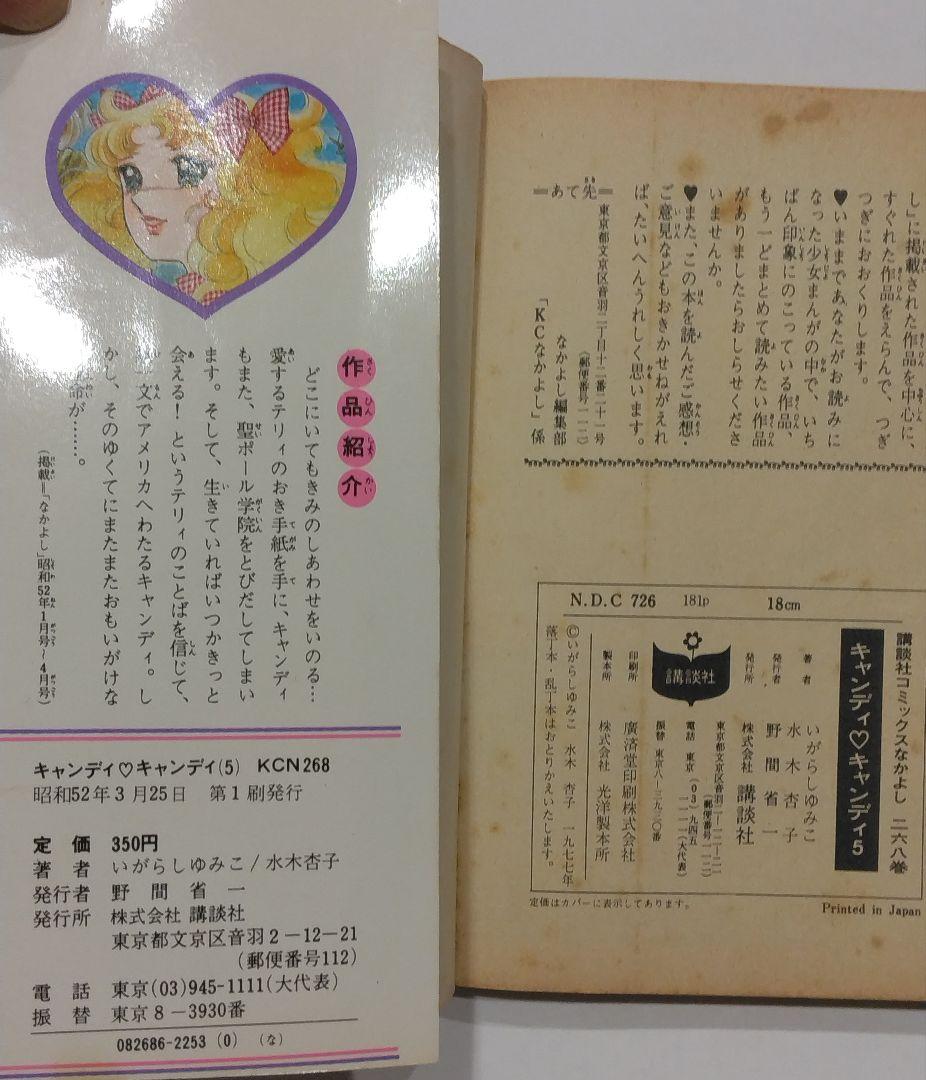 作品紹介
どこにいてもきみのしあわせをいのる…
愛するテリィのおき手紙を手に、キャンディ
もまた、聖ポール学院をとびだしてしまい
ます。そして、生きていればいつかきっと
会える！というテリィのことばを信じて、
文でアメリカへわたるキャンディ。し
かし、そのゆくてにまたまたおもいがけな
命が……。
(掲載＝「なかよし」昭和52年1月号～4月号)
キャンディ♡キャンディ(5) KCN268
昭和52年3月25日 第1刷発行
定価 350円
著者 いがらしゆみこ/水木杏子
発行者 野間省一
発行所 株式会社 講談社
東京都文京区音羽2－12－21
(郵便番号112)
電話 東京(03)945-1111(大代表)
振替 東京8－3930番
082686-2253 (0) (な)
し」に掲載された作品を中心に、
すぐれた作品をえらんで、つぎ
つぎにおおくりします。
♥いままであなたがお読みに
なった少女まんがの中で、いち
ばん印象にのこっている作品、
もう一どまとめて読みたい作品
がありましたらおしらせくださ
いませんか。
♥また、この本を読んだご感想・
ご意見などもおきかせねがえれ
ば、たいへんうれしく思います。
＝あて先＝
東京都文京区音羽二丁目十二番二十一号
(郵便番号一一二)
なかよし編集部
「KCなかよし」係
N.D.C 726 181p 18cm
講談社コミックスなかよし 二六八巻
キャンディ♡キャンディ5
著者 いがらしゆみこ
水木杏子
発行者 野間省一
発行所 株式会社 講談社
東京都文京区音羽二－一二－二一
(郵便番号一一二)
電話 東京(03)九四五
一一一一(大代表)
振替 東京八－三九三〇番
講談社
印刷所 廣済堂印刷株式会社
製本所 株式会社 光洋製本所
©いがらしゆみこ 水木杏子 一九七七年
落丁本・乱丁本はおとりかえいたします。
定価はカバーに表示してあります。
Printed in Japan